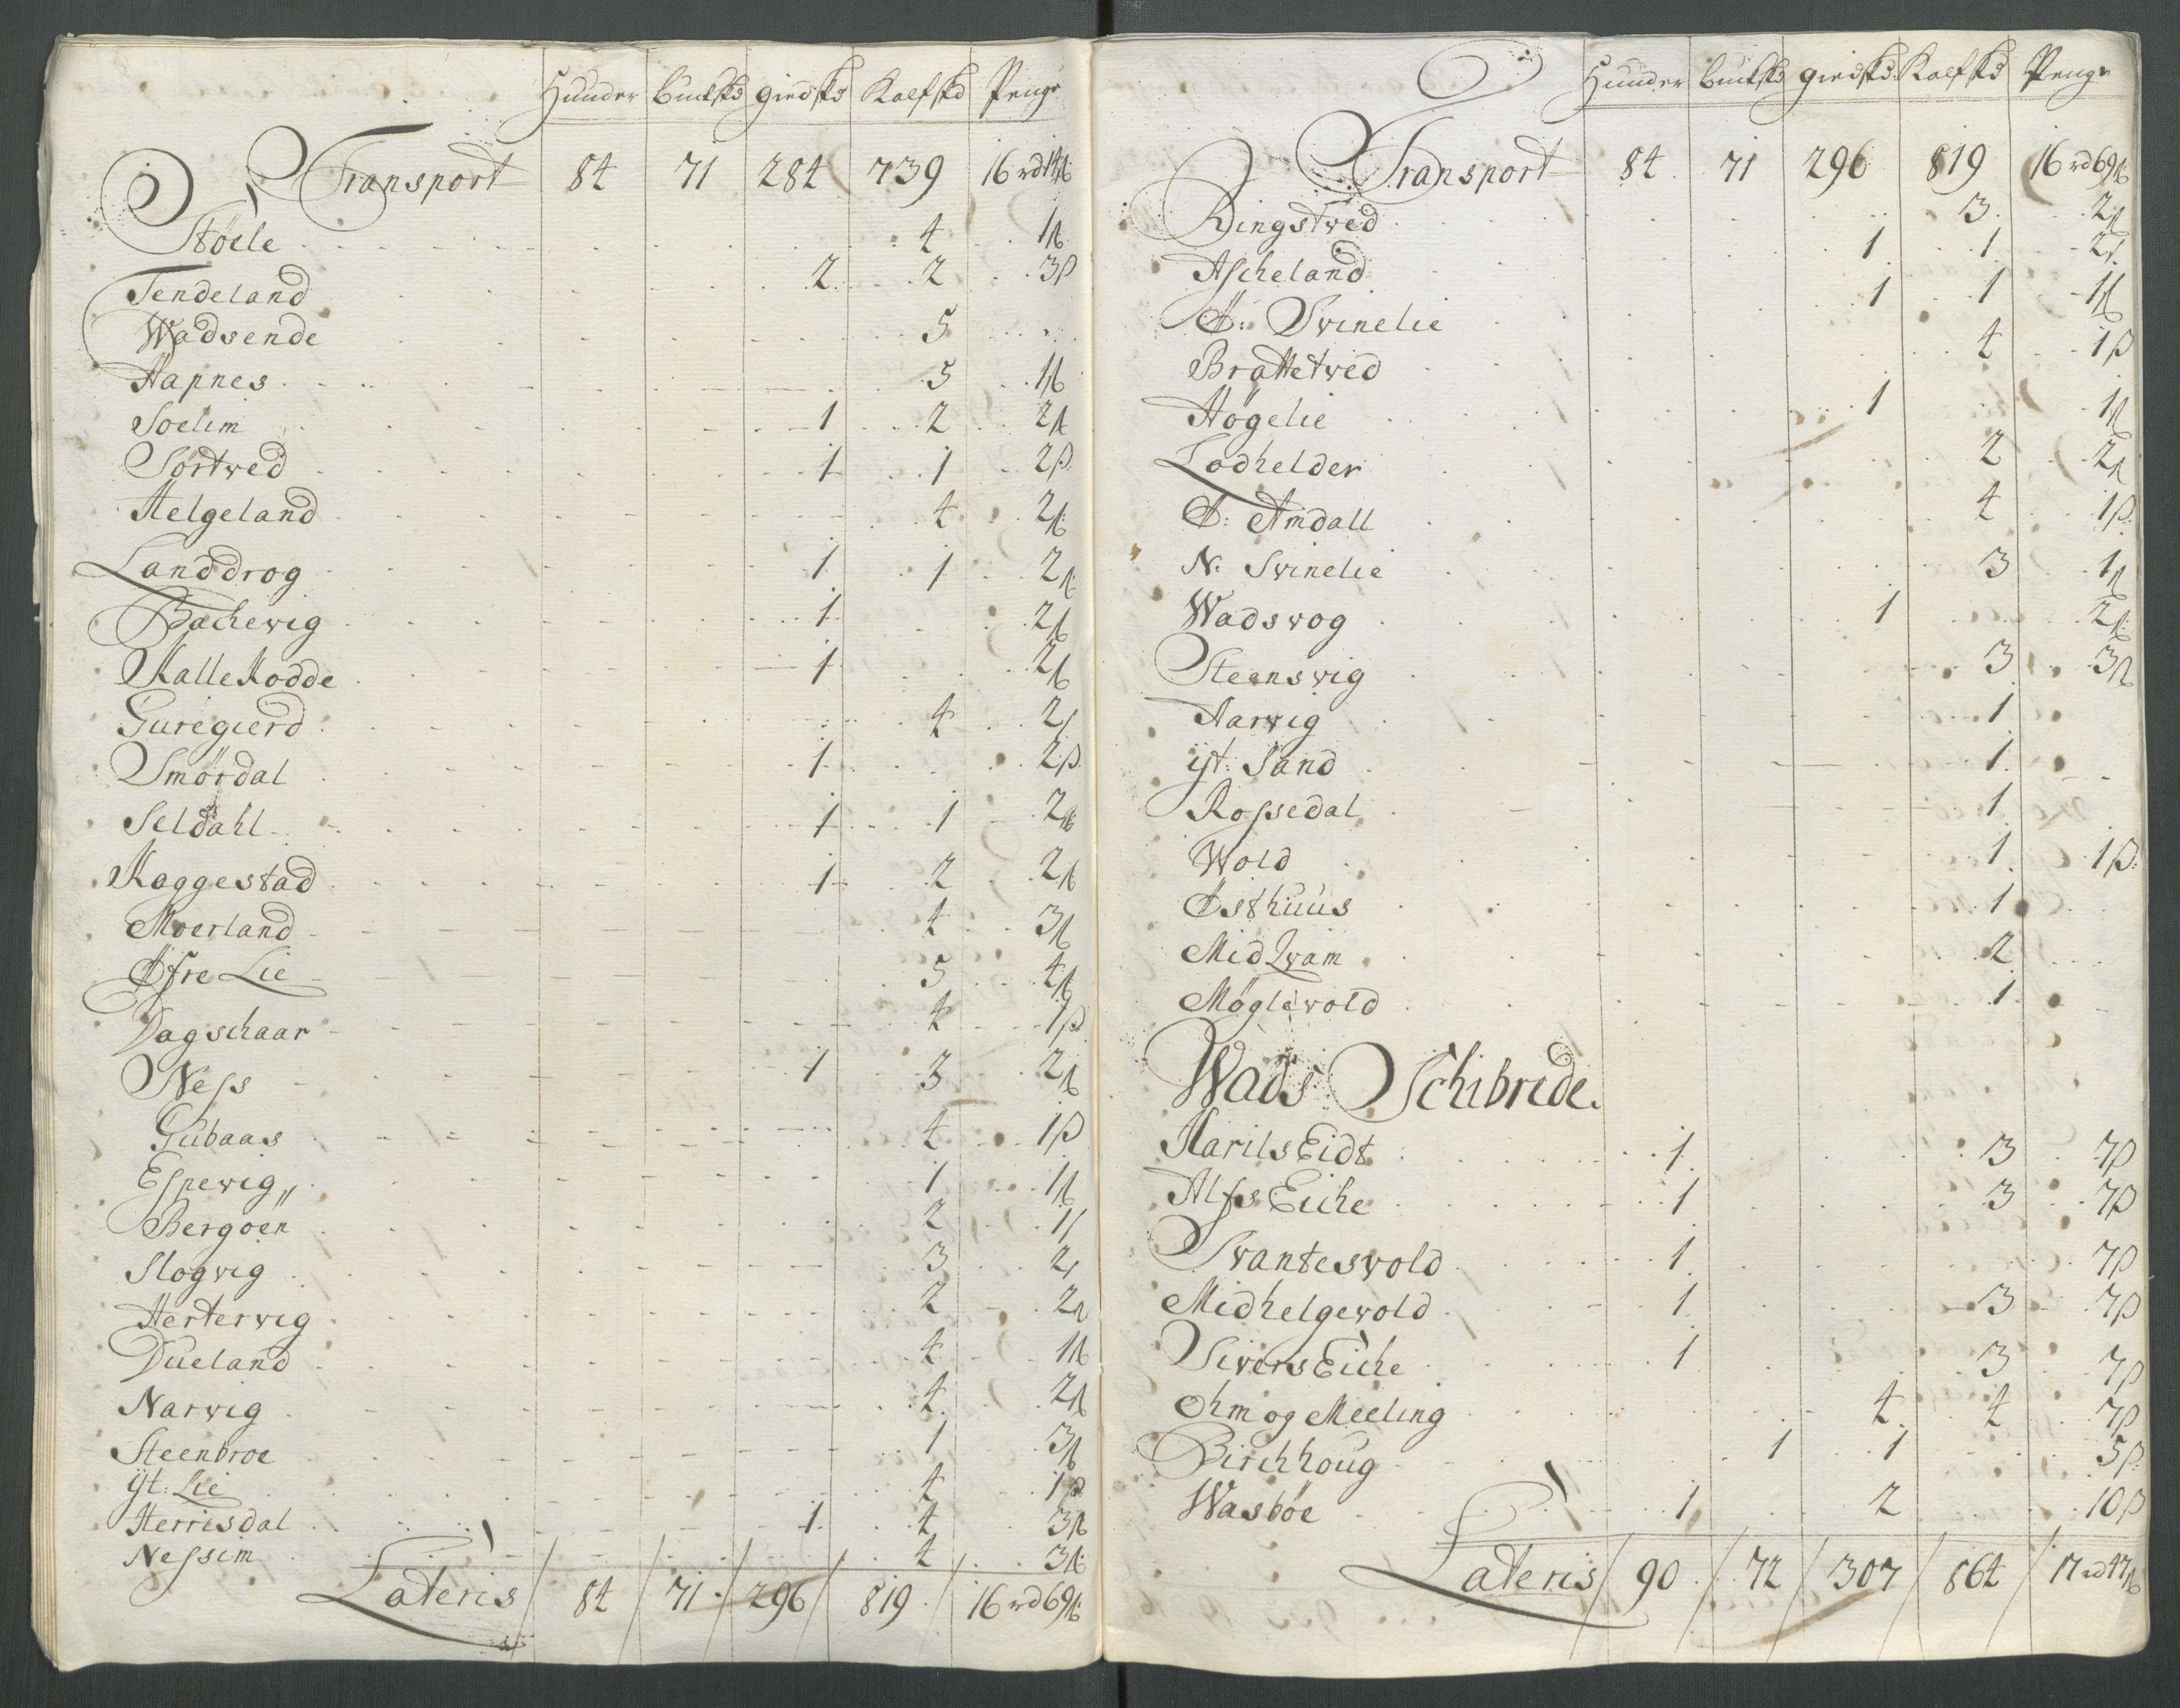 Hunder Buckskd giedskd Kalfskd Penge
Transport 84 71 284 739 16 rd 14ß
Støele 4 1ß
Tendeland 2 2 3ß
Wadsende 5
Hapnes 5 1ß
Soelim 1 2 2ß
Sørtved 1 1 2ß
Helgeland 4 2ß
Landdrog 1 1 2ß
Bachevig 1 2ß
Kallekodde 1 2ß
Guregierd 4 2ß
Smørdal 1 2ß
Seldahl 1 1 2ß
Kaggestad 1 2 2ß
Moerland 4 3ß
Øfre Lie 5 4ß
Dagschaar 4 1ß
Ness 1 3 2ß
Gubaas 4 1ß
Espevig 1 1ß
Bergøen 2 1ß
Slogvig 3 2ß
Hertervig 2 2ß
Dueland 4 1ß
Narvig 4 2ß
Steenbroe 1 3ß
ÿt: Lie 4 1ß
Herrisdal 1 4 3ß
Nessim 4 3ß
Lateris 84 71 296 819 16 rd 69ß
Hunder Buckskd giedskd Kalfskd Penge
Transport 84 71 296 819 16 rd 69ß
Ringstved 3 2ß
Ascheland 1 1 2ß
Ø: Svinelie 1 1 1ß
Brattetved 4 1ß
Høgelie 1 1ß
Lodhelder 2 2ß
Ø: Amdall 4 1ß
N: Svinelie 3 1ß
Wadsvog 1 2ß
Steensvig 3 3ß
Aarvig 1
ÿt: Sand 1
Rossedal 1
Wold 1 1ß
Østhuus 1
Mid Qvam 2
Møglevold 1
Wads Schibrede
Karils Eidt 1 3 7ß
Alfs Eiche 1 3 7ß
Svantesvold 1 7ß
Midhelgevold 1 3 7ß
Sivers Eiche 1 3 7ß
Ohm og Meeling 4 4 7ß
Birchhoug 1 1 5ß
Wasbøe 1 2 10ß
Lateris 90 72 307 864 17 rd 47ß